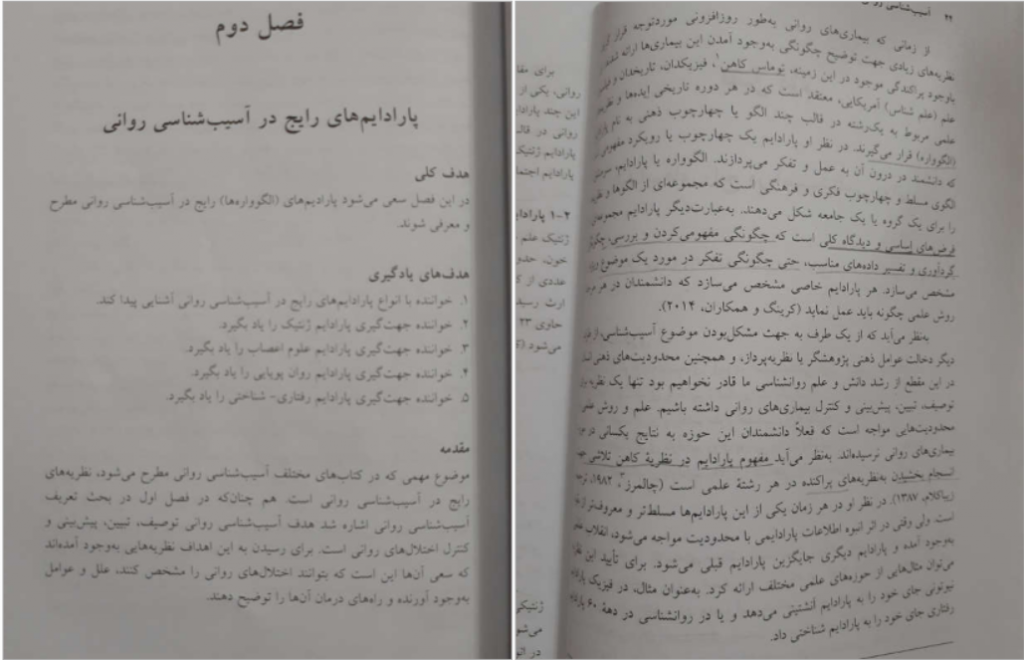 فصل دوم
پارادایم‌های رایج در آسیب‌شناسی روانی
هدف کلی
در این فصل سعی می‌شود پارادیم‌های (الگوواره‌ها) رایج در آسیب‌شناسی روانی مطرح
و معرفی شوند.
هدف‌های یادگیری
۱. خواننده با انواع پارادایم‌های رایج در آسیب‌شناسی روانی آشنایی پیدا کند.
۲. خواننده جهت‌گیری پارادایم ژنتیک را یاد بگیرد.
۳. خواننده جهت‌گیری پارادایم علوم اعصاب را یاد بگیرد.
۴. خواننده جهت‌گیری پارادایم روان پویایی را یاد بگیرد.
۵. خواننده جهت‌گیری پارادایم رفتاری- شناختی را یاد بگیرد.
مقدمه
موضوع مهمی که در کتاب‌های مختلف آسیب‌شناسی روانی مطرح می‌شود، نظریه‌های
رایج در آسیب‌شناسی روانی است. هم چنان‌که در فصل اول در بحث تعریف
آسیب‌شناسی روانی اشاره شد هدف آسیب‌شناسی روانی توصیف، تبیین، پیش‌بینی و
کنترل اختلال‌های روانی است. برای رسیدن به این اهداف نظریه‌هایی به‌وجود آمده‌اند
که سعی آن‌ها این است که بتوانند اختلال‌های روانی را مشخص کنند، علل و عوامل
به‌وجود آورنده و راه‌های درمان آن‌ها را توضیح دهند.
۲۲ آسیب‌شناسی
از زمانی که بیماری‌های روانی به‌طور روزافزونی موردتوجه قرار
نظریه‌های زیادی جهت توضیح چگونگی به‌وجود آمدن این بیماری‌ها ارائه
باوجود پراکندگی موجود در این زمینه، توماس کاهن۱، فیزیکدان، تاریخدان و
علم (علم شناس) آمریکایی، معتقد است که در هر دوره تاریخی ایده‌ها و
علمی مربوط به یک‌رشته در قالب چند الگو یا چهارچوب ذهنی به نام
(الگوواره) قرار می‌گیرند. در نظر او پارادایم یک چهارچوب یا رویکرد مفهومی
که دانشمند در درون آن به عمل و تفکر می‌پردازند. الگوواره یا پارادایم،
الگوی مسلط و چهارچوب فکری و فرهنگی است که مجموعه‌ای از الگوها و
را برای یک گروه یا یک جامعه شکل می‌دهند. به‌عبارت‌دیگر پارادایم
فرض‌های اساسی و دیدگاه کلی است که چگونگی مفهومی‌کردن و بررسی،
گردآوری و تفسیر داده‌های مناسب، حتی چگونگی تفکر در مورد یک موضوع
مشخص می‌سازد. هر پارادایم خاصی مشخص می‌سازد که دانشمندان در هر
روش علمی چگونه باید عمل نماید (کرینگ و همکاران، ۲۰۱۴).
به‌نظر می‌آید که از یک طرف به جهت مشکل‌بودن موضوع آسیب‌شناسی،
دیگر دخالت عوامل ذهنی پژوهشگر یا نظریه‌پرداز، و همچنین محدودیت‌های ذهنی
در این مقطع از رشد دانش و علم روانشناسی ما قادر نخواهیم بود تنها یک
توصیف، تبیین، پیش‌بینی و کنترل بیماری‌های روانی داشته باشیم. علم و روش
محدودیت‌هایی مواجه است که فعلاً دانشمندان این حوزه به نتایج یکسانی
بیماری‌های روانی نرسیده‌اند. به‌نظر می‌آید مفهوم پارادایم در نظریهٔ کاهن تلاشی
انسجام بخشیدن به‌نظریه‌های پراکنده در هر رشتهٔ علمی است (چالمرز۲، ۱۹۸۲،
زیباکلام، ۱۳۸۷). در نظر او در هر زمان یکی از این پارادایم‌ها مسلط‌تر و معروف‌تر از
است. ولی وقتی در اثر انبوه اطلاعات پارادایمی با محدودیت مواجه می‌شود، انقلاب
به‌وجود آمده و پارادایم دیگری جایگزین پارادایم قبلی می‌شود. برای تأیید این
می‌توان مثال‌هایی از حوزه‌های علمی مختلف ارائه کرد. به‌عنوان مثال، در فیزیک
نیوتونی جای خود را به پارادایم انشتینی می‌دهد و یا در روانشناسی در دههٔ ۶۰
رفتاری جای خود را به پارادایم شناختی داد.
برای
روانی، یکی از
این چند
روانی در
پارادایم ژنتیک
پارادایم
۲-۱
ژنتیک علم
خون،
عددی از
ارث
حاوی ۲۳
می‌شود
در